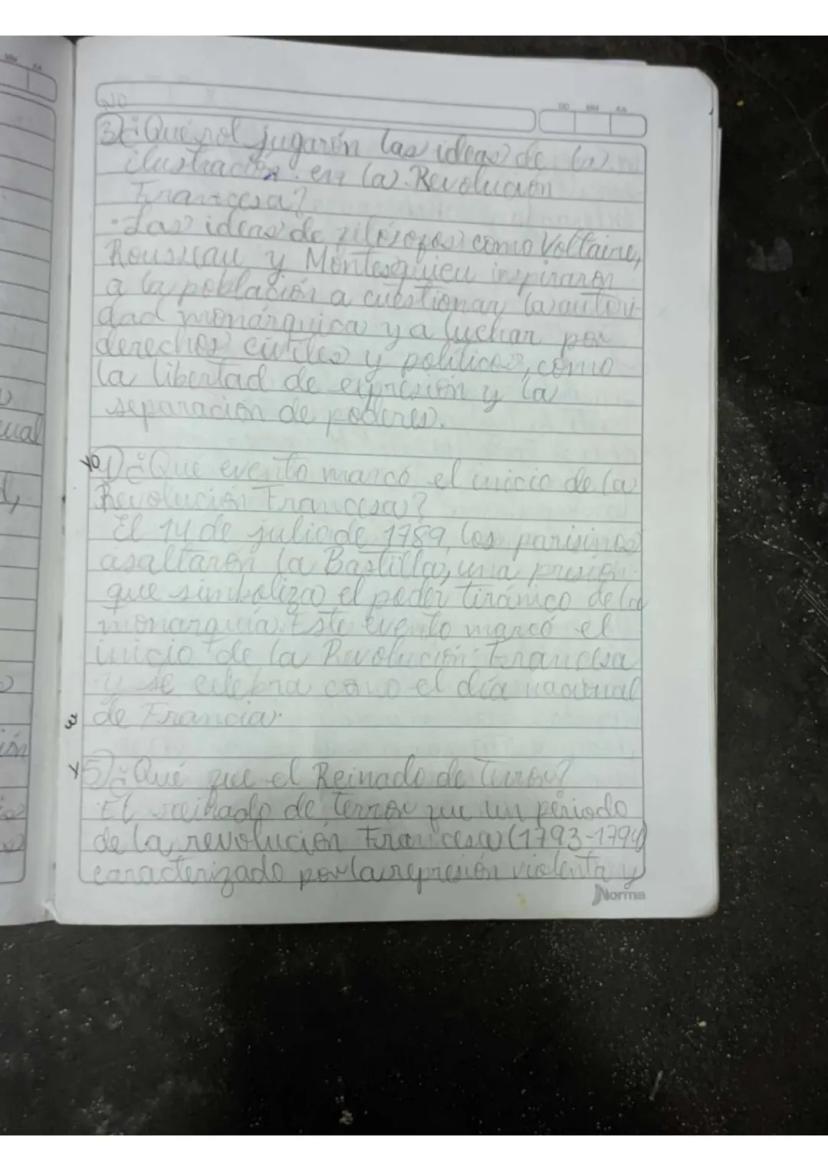 DD MM AA
3) ¿Qué rol jugarón las ideas de la
ilustración en la Revolución
Francesa?
- Las ideas de filósofos como Voltaire,
Rousseau y Montesquieu inspiraron
a la población a cuestionar la autori-
dad monárquica y a luchar por
derechos civiles y políticos, como
la libertad de expresión y la
separación de poderes.
¿Qué evento marcó el inicio de la
Revolución Francesa?
El 14 de julio de 1789, los parisinos
asaltarón la Bastilla, una presión
que simboliza el poder tiránico de la
monarquía. Este evento marcó el
inicio de la Revolución Francesa
y se celebra como el día nacional
de Francia.
5) ¿Qué fue el Reinado de Terror?
El reinado de terror fue un período
de la revolución Francesa (1793-1794)
caracterizado por la represión violenta y
Norma